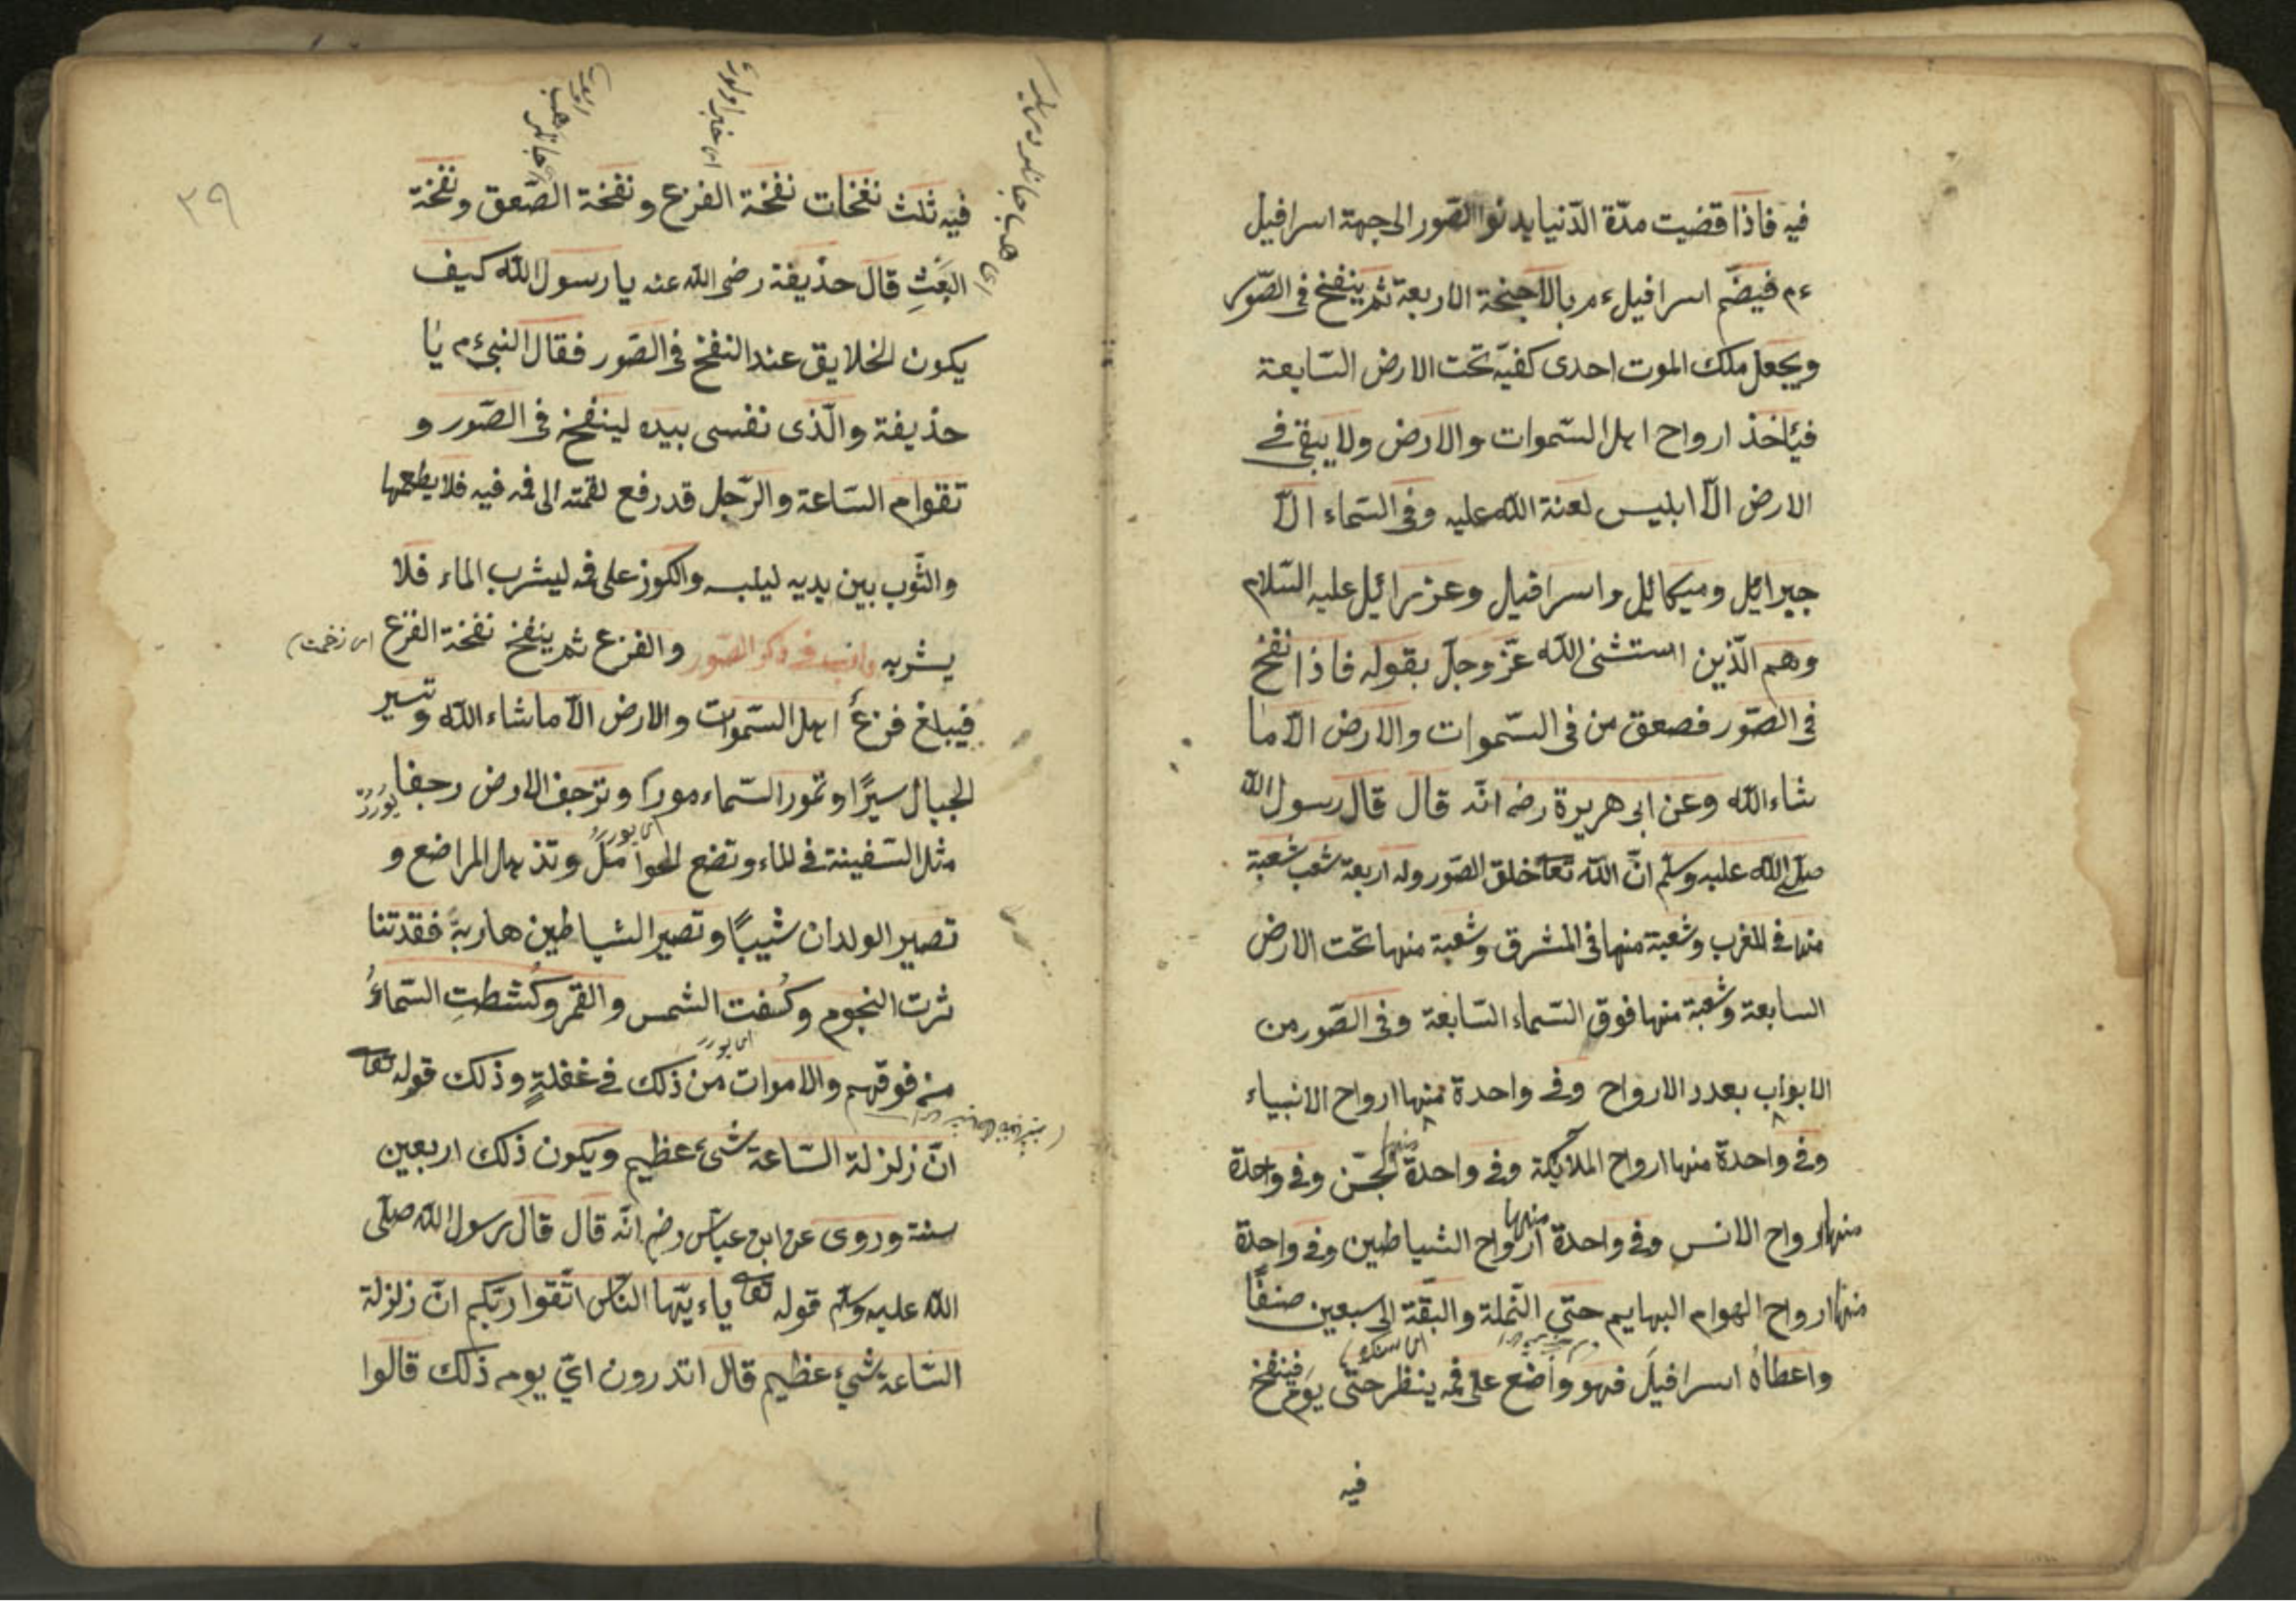 فيه فاذا قضيت مدّة الدّنيا يدنوا الصّور الى جهة اسرافيل
ءم فيضّم اسرافيل ءم بالاجنحة الاربعة ثم ينفخ فى الصّور
ويجعل ملك الموت احدى كفيّه تحت الارض السّابعة
فيأخذ ارواح اهل السّموات والارض ولا يبقى فى
الارض الّا ابليس لعنة الله عليه وفى السّماء الّا
جبرائيل وميكائيل واسرافيل وعزرائيل عليه السّلام
وهم الّذين استثنى الله عزّ وجلّ بقوله فاذا نفخ
فى الصّور فصعق من فى السّموات والارض الّا ما
شاء الله وعن ابى هريرة رضه انّه قال قال رسول الله
صلّى الله عليه وسلّم انّ الله تعا خلق الصّور وله اربعة شعب شعبة
منها فى المغرب وشعبة منها فى المشرق وشعبة منها تحت الارض
السابعة وشعبة منها فوق السّماء السّابعة وفى الصّور من
الابواب بعدد الارواح وفى واحدة منها ارواح الانبياء
وفى واحدة منها ارواح الملائكة وفى واحدة منها الجّن وفى واحدة
منها ارواح الانس وفى واحدة منها ارواح الشياطين وفى واحدة
منها ارواح الهوام البهايم حتّى النّملة والبقّة الى سبعين صنفًا
واعطاه اسرافيل فهو واضع على فمه ينظر حتّى يوم فينفخ
فيه
٣٩
فيه ثلث نفخات نفخة الفزع ونفخة الصّعق ونفخة
البعث قال حذيفة رضى الله عنه يا رسول الله كيف
يكون الخلايق عند النفخ فى الصّور فقال النبىّ ءم يا
حذيفة والّذى نفسى بيده لينفخ فى الصّور و
تقوام السّاعة والرّجل قد رفع لقمته الى فمه فيه فلا يطعمها
والثّوب بين يديه ليلبسه والكوز على فمه ليشرب الماء فلا
يشربه فى ذكر الصّور والفزع ثم ينفخ نفخة الفزع
فيبلغ فزع اهل السّموات والارض الّا ما شاء الله وتسير
الجبال سيرًا وتمور السّماء مورا وترجف الارض رجفا
مثل السّفينة فى الماء وتضع الحوامل وتذهل المراضع و
تصير الولدان شيبًا وتصير الشياطين هاربة فقد تنا
ثرت النجوم وكسفت الشمس والقمر وكشطت السّماء
من فوقهم والاموات من ذلك فى غفلةٍ وذلك قوله تعا
انّ زلزلة السّاعة شىء عظيم ويكون ذلك اربعين
سنة وروى عن ابن عبّاس رضه انّه قال قال رسول الله صلّى
الله عليه وسلّم قوله تعا ياءيّها النّاس اتّقوا ربّكم انّ زلزلة
السّاعة شىء عظيم قال اتدرون اىّ يوم ذلك قالوا